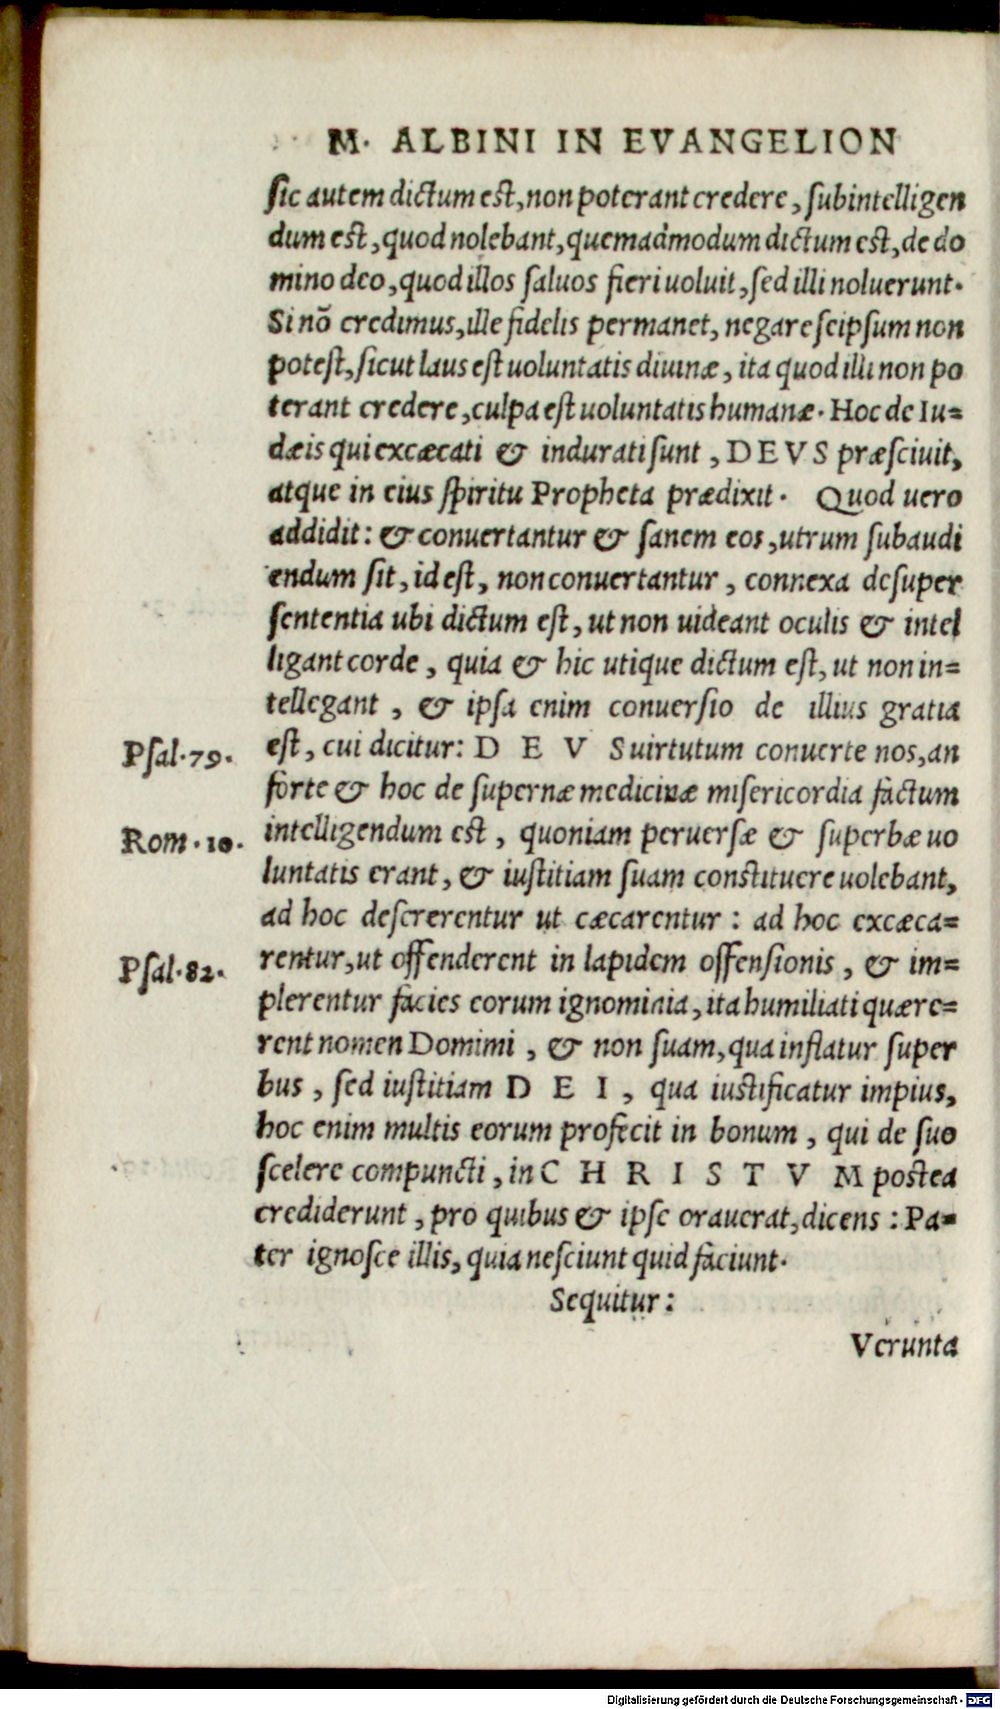 M. ALBINI IN EVANGELION
sic autem dictum est, non poterant credere, subintelligen
dum est, quod nolebant, quemadmodum dictum est, de do
mino deo, quod illos saluos fieri uoluit, sed illi noluerunt.
Si nõ credimus, ille fidelis permanet, negare seipsum non
potest, sicut laus est uoluntatis diuinæ, ita quod illi non po
terant credere, culpa est uoluntatis humanæ. Hoc de Iu=
dæis qui excæcati & indurati sunt, DEVS præsciuit,
atque in eius spiritu Propheta prædixit. Quod uero
addidit: & conuertantur & sanem eos, utrum subaudi
endum sit, id est, non conuertantur, connexa desuper
sententia ubi dictum est, ut non uideant oculis & intel
ligant corde, quia & hic utique dictum est, ut non in=
tellegant, & ipsa enim conuersio de illius gratia
Psal. 79. est, cui dicitur: D E V S uirtutum conuerte nos, an
forte & hoc de supernæ medicinæ misericordia factum
Rom. 10. intelligendum est, quoniam peruersæ & superbæ uo
luntatis erant, & iustitiam suam constituere uolebant,
ad hoc desererentur ut cæcarentur: ad hoc excæca=
Psal. 82. rentur, ut offenderent in lapidem offensionis, & im=
plerentur facies eorum ignominia, ita humiliati quære=
rent nomen Domimi, & non suam, qua inflatur super
bus, sed iustitiam D E I, qua iustificatur impius,
hoc enim multis eorum profecit in bonum, qui de suo
scelere compuncti, in C H R I S T V M postea
crediderunt, pro quibus & ipse orauerat, dicens: Pa=
ter ignosce illis, quia nesciunt quid faciunt.
Sequitur:
Verunta
Digitalisierung gefördert durch die Deutsche Forschungsgemeinschaft - DFG